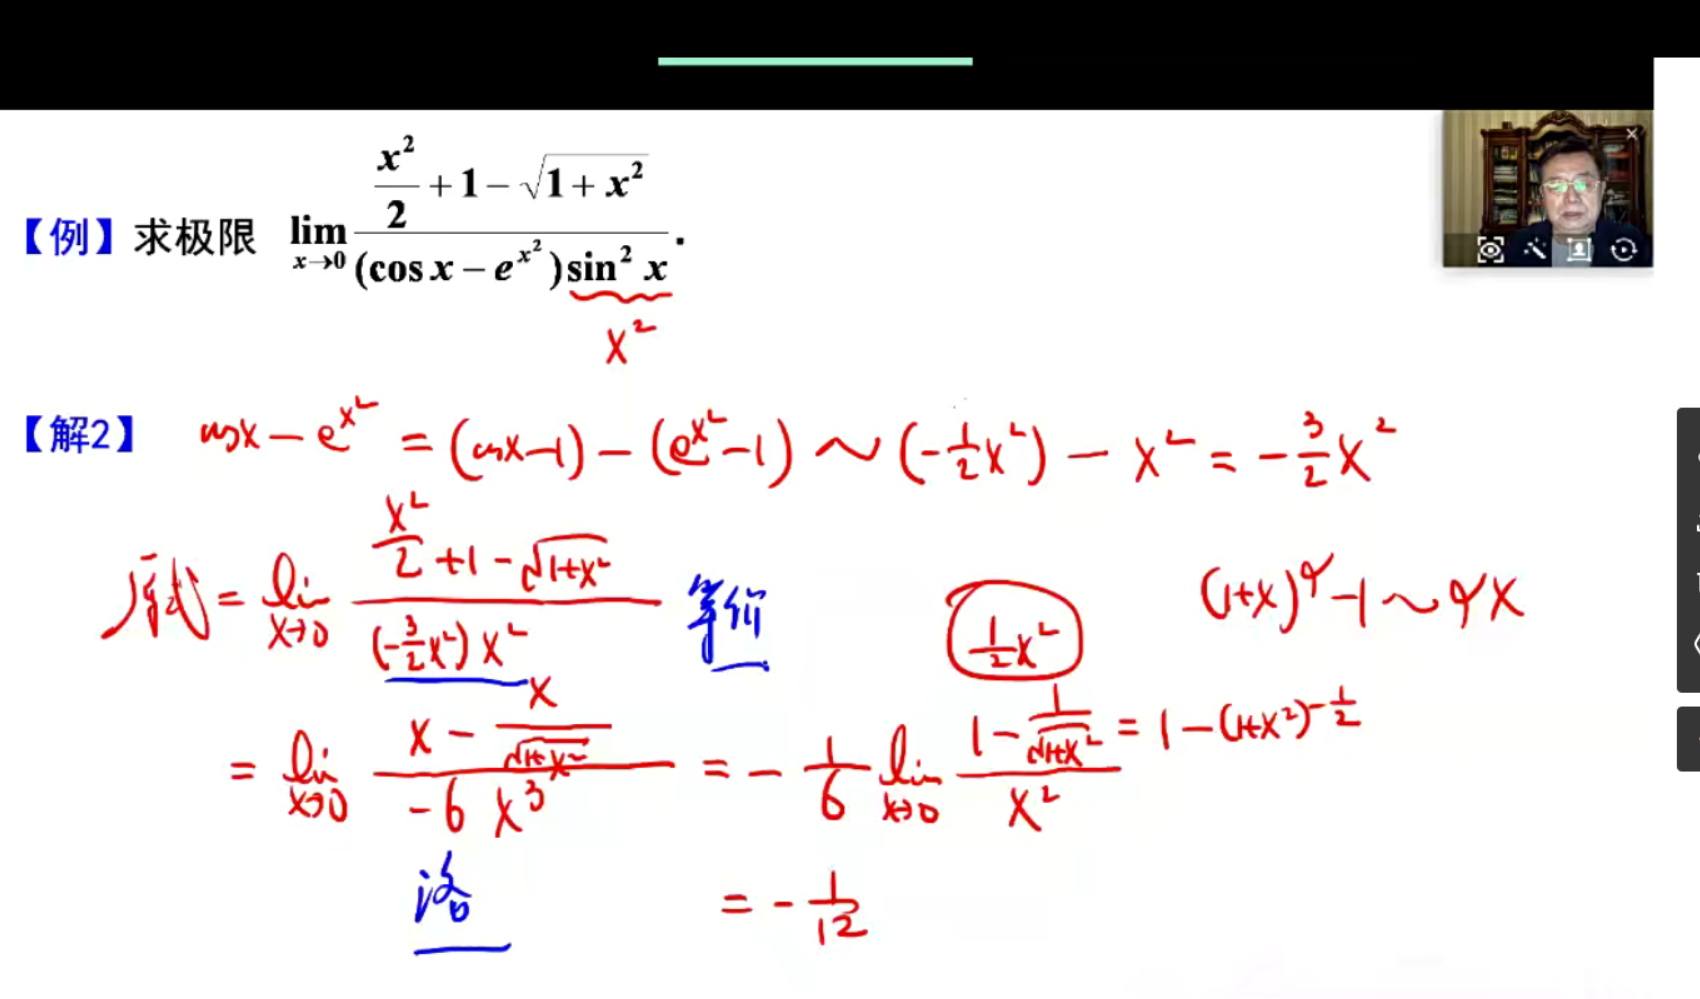 【例】求极限 lim x→0 (x²/2 + 1 − √(1 + x²)) / ((cos x − e^(x²)) sin² x).
x²
【解2】 cosx − e^(x²) = (cosx−1) − (e^(x²)−1) ~ (−1/2 x²) − x² = −3/2 x²
原式 = lim x→0 (x²/2 + 1 − √(1+x²)) / ((−3/2 x²) x²) 等价 1/2 x² (1+x)^α −1 ~ αx
= lim x→0 (x − x/√(1+x²)) / (−6 x³) = − 1/6 lim x→0 (1 − 1/√(1+x²)) / x² = 1 − (1+x²)^(−1/2)
洛 = − 1/12